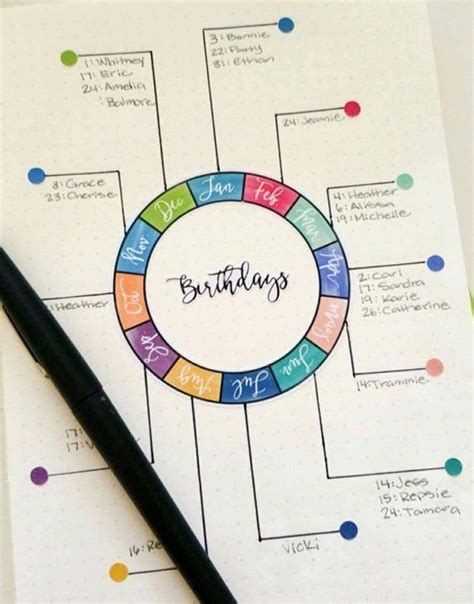 1: Whitney
17: Eric
24: Amelia
: Balmore
3: Bonnie
22: Patty
31: Ethan
24: Jeannie
3: Grace
23: Cherise
4: Heather
6: Alissa
19: Michelle
Dec
Jan
Feb.
Mar
Nov
Apr
Oct
May
Sep.
Jun.
Aug
Jul
Birthdays
2: Carl
17: Sandra
19: Karie
26: Catherine
Heather
14: Trammie
17:
17: V
14: Jess
15: Repsie
24: Tamara
16: Re
Vicki